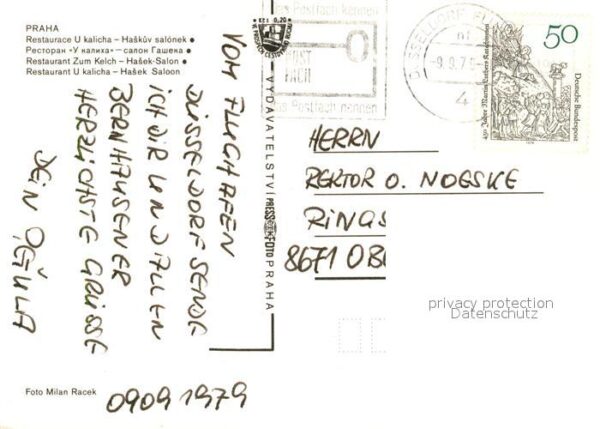 PRAHA
Restaurace U kalicha – Haškův salónek ●
Ресторан «У калиха» – салон Гашека ●
Restaurant Zum Kelch – Hašek-Salon ●
Restaurant U kalicha – Hašek Saloon
VOM FLUGHAFEN
DÜSSELDORF SENDE
ICH DIR UND ALLEN
BERNHAUSENER
HERZLICHSTE GRÜSSE
DEIN
09091979
Foto Milan Racek
VYDAVATELSTVÍ PRESSFOTO PRAHA
das Postfach kennen
POST
FACH
das Postfach kennen
DÜSSELDORF FLU
-9.9.7
4
50
450 Jahre Martin Luthers Katechismus
Deutsche Bundespost
HERRN
REKTOR O. NOESKE
RING
8671 OB
privacy protection
Datenschutz